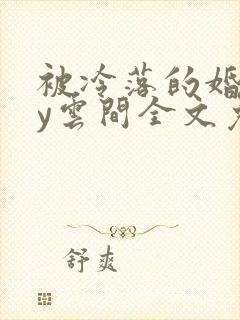 被冷落的婚
y雲間全文
舒爽